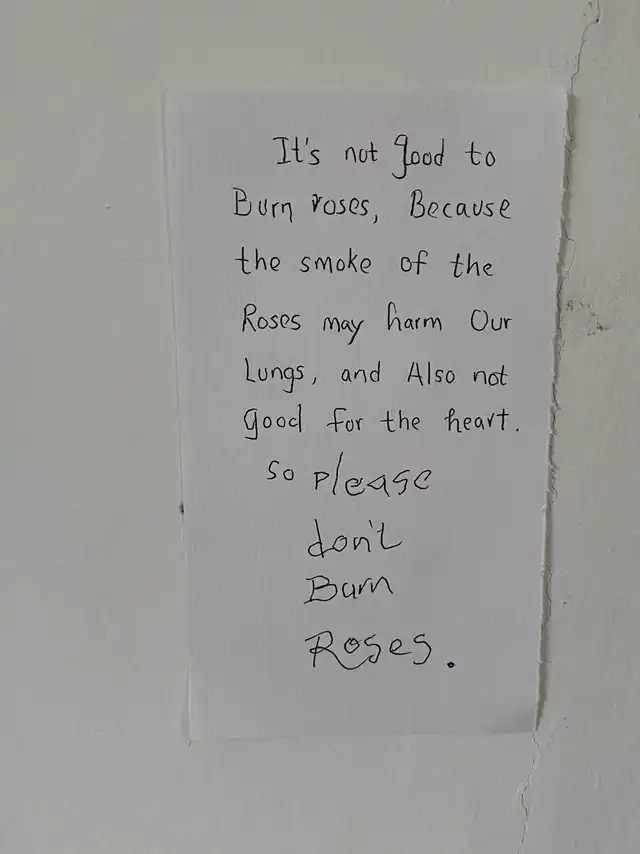 It's not good to
Burn roses, Because
the smoke of the
Roses may harm Our
Lungs, and Also not
good for the heart.
so please
don't
Burn
Roses.